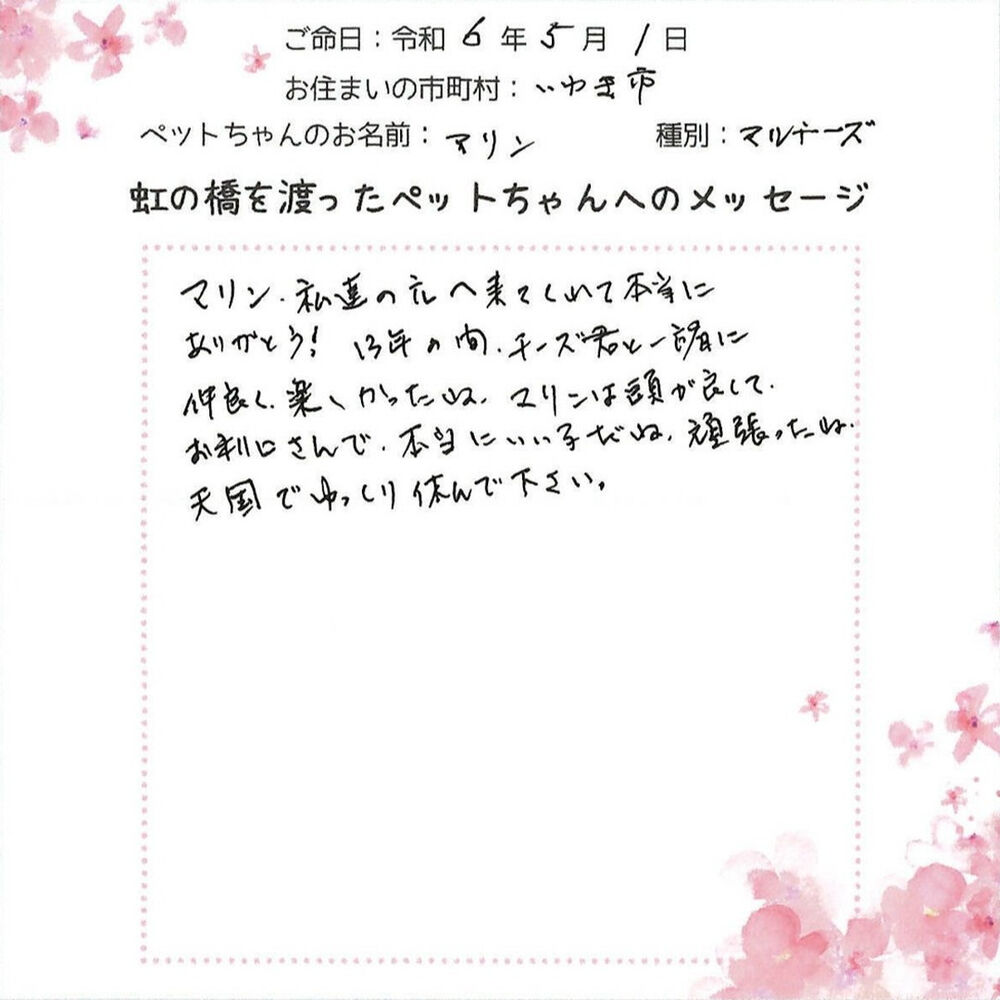 ご命日：令和 6 年 5 月 1 日
お住まいの市町村：いわき市
ペットちゃんのお名前：マリン 種別：マルチーズ
虹の橋を渡ったペットちゃんへのメッセージ
マリン、私達の元へ来てくれて本当に
ありがとう！ 13年の間、チーズ君と一緒に
仲良く、楽しかったね、マリンは頭が良くて、
お利口さんで、本当にいい子だね、頑張ったね、
天国でゆっくり休んで下さい。